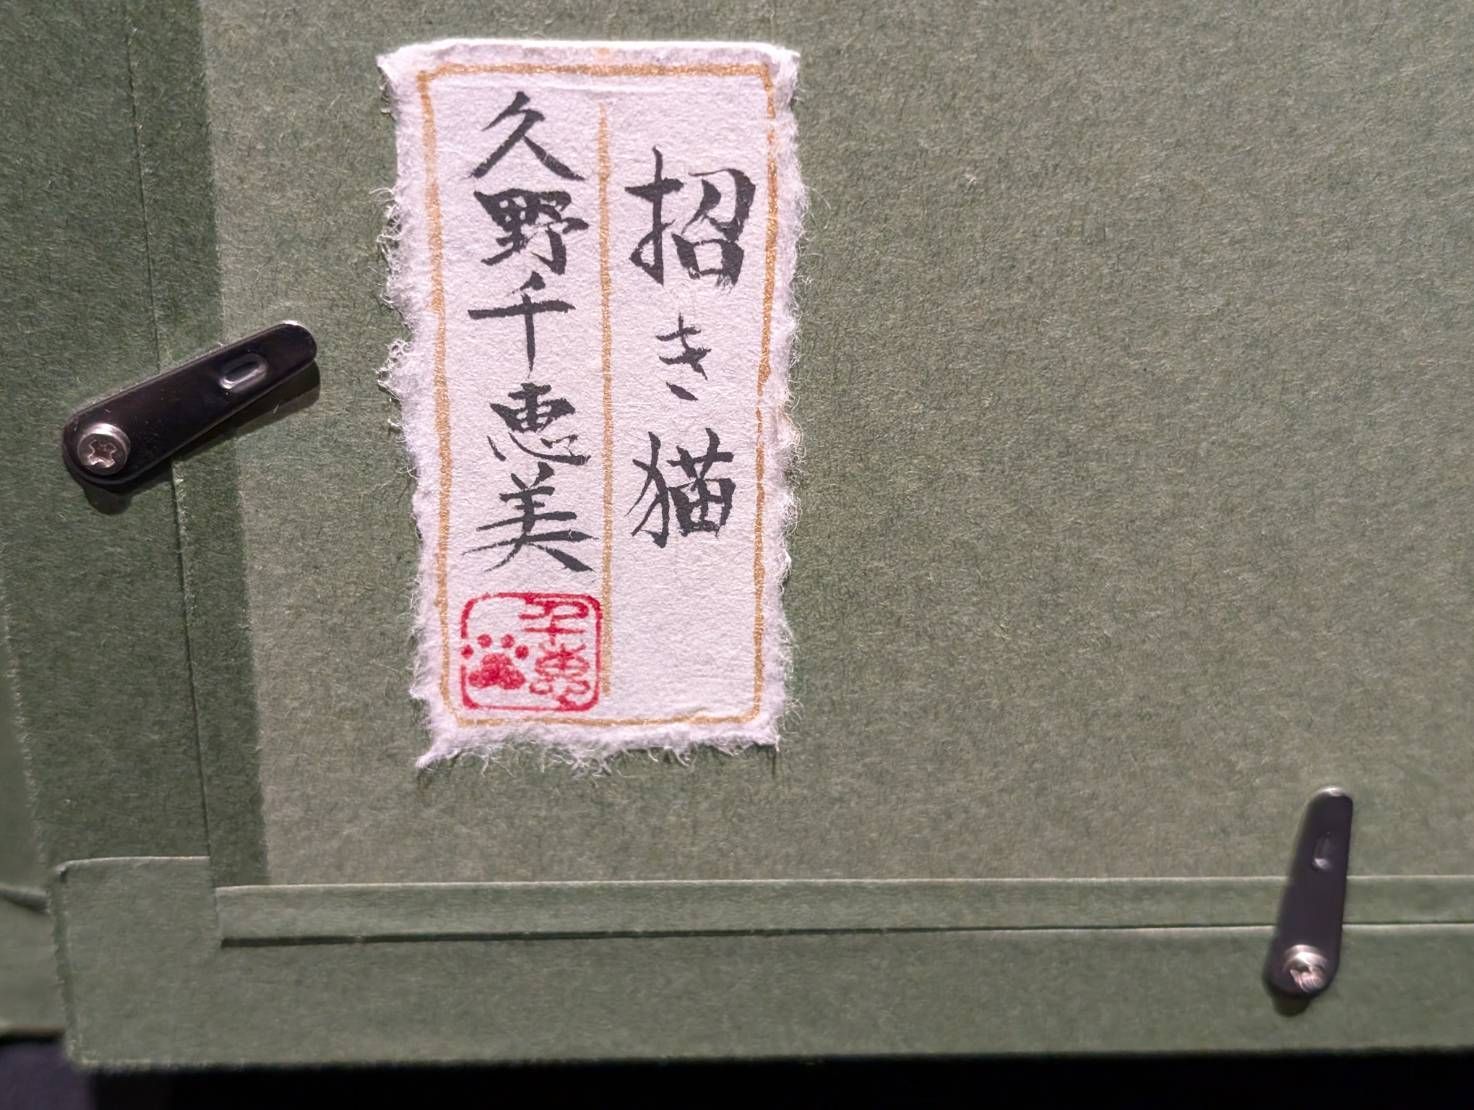 招き猫
久野千恵美